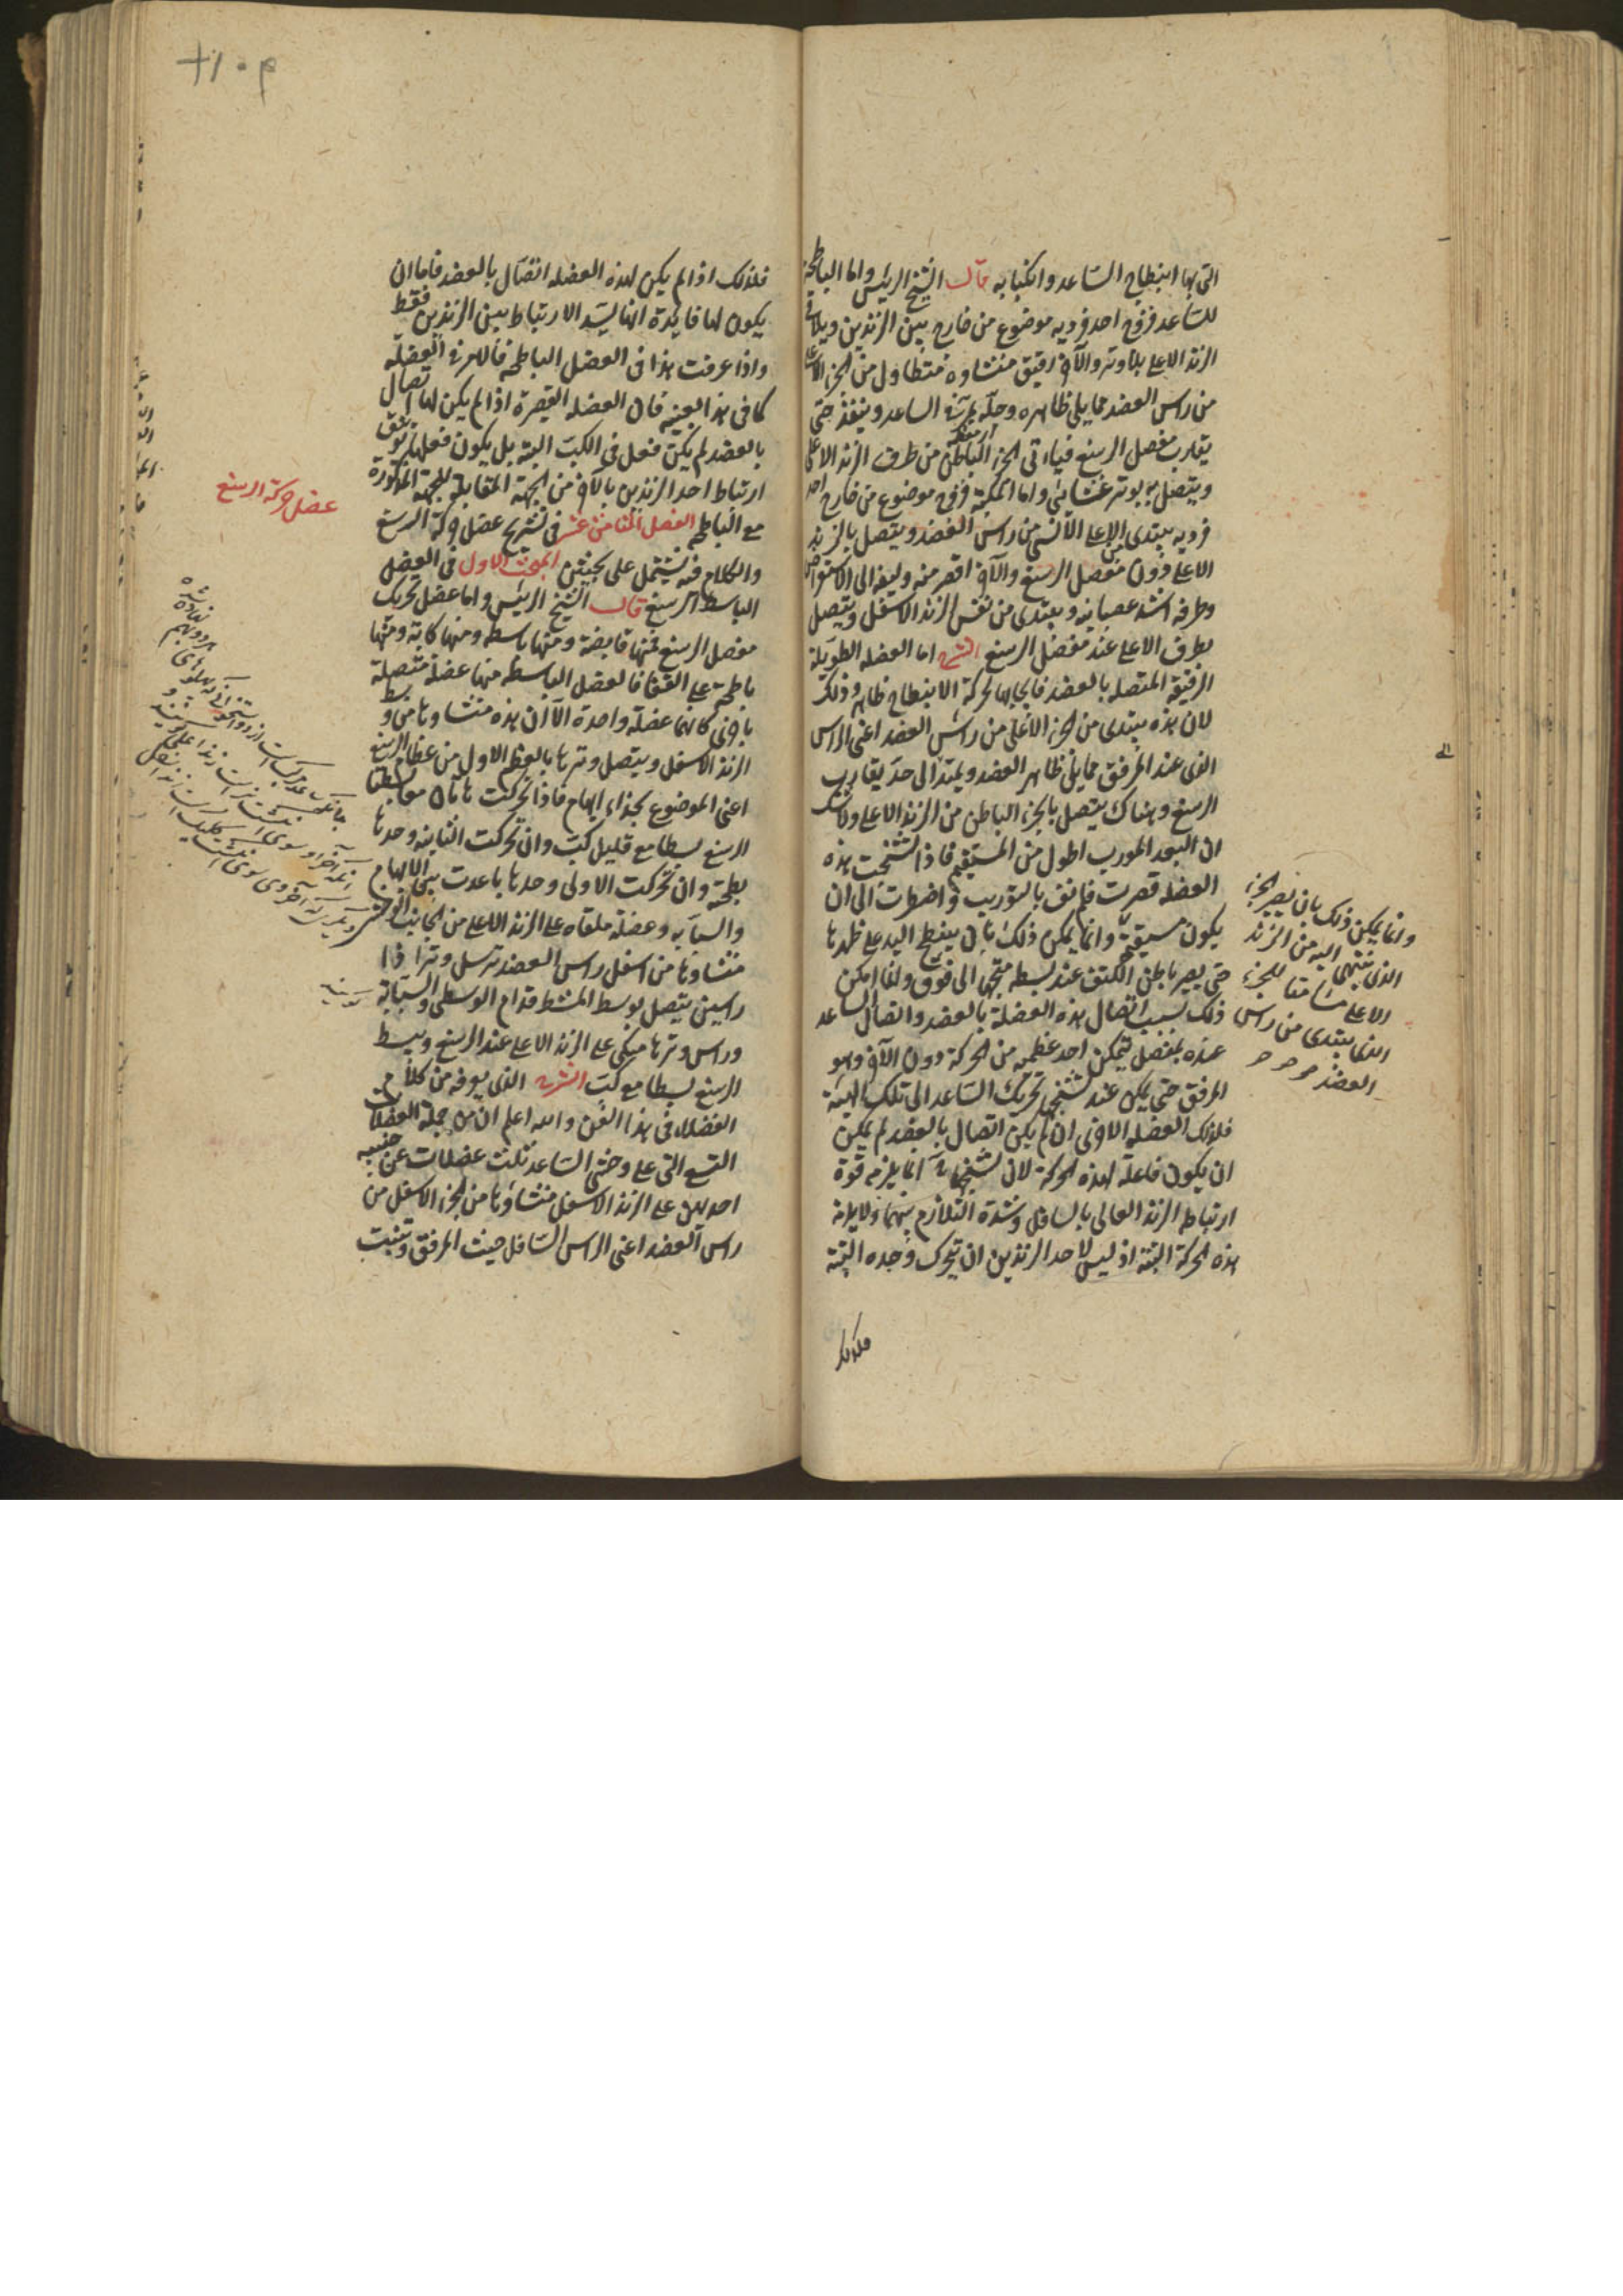 التى بها انبطاح الساعد وانكبابه قال الشيخ الرئيس واما الباطحة
للساعد فزوج احد فرديه موضوع من خارج بين الزندين ويلاقى
الزند الاعلى بلا وتر والآخر رقيق متطاول منشاوه من الجزء الاعلى
من راس العضد مما يلى ظاهره وجله يمر فى الساعد وينفذ حتى
يقارب مفصل الرسغ فياتى الجزء الباطن من طرف الزند الاعلى
ويتصل به بوتر غشائى واما المكبة فزوج موضوع من خارج احد
فرديه يبتدى من الاعلى الانسى من راس العضد ويتصل بالزند
الاعلى دون مفصل الرسغ والآخر اقصر منه وليفه الى الاستعراض
وطرفه اشد عصبانيه ويبتدى من نفس الزند الاسفل ويتصل
بطرف الاعلى عند مفصل الرسغ الشرح اما العضله الطويلة
الرقيقه المتصله بالعضد فايجابها لحركة الانبطاح ظاهر وذلك
لان هذه يبتدى من الجزء الاعلى من راس العضد اعنى الراس
الذى عند المرفق مما يلى ظاهر العضد ويمتد الى حد يقارب
الرسغ وهناك يتصل بالجزء الباطن من الزند الاعلى ولا شك
ان البعد المورب اطول من المستقيم فاذا تشنجت هذه
العضله قصرت فلم تف بالتوريب واضطرت الى ان
يكون مستقيمة وانما يمكن ذلك بان ينبطح اليد على ظهرها
حتى يصير باطن الكف عند بسطه متجها الى فوق وانما امكن
ذلك بسبب اتصال هذه العضلة بالعضد واتصال الساعد
عنده بمفصل يتمكن احد عظميه من الحركة دون الآخر وهو
المرفق حتى يمكن عند تشنجها تحريك الساعد الى تلك الهيئة
فلذلك العضله الاخرى ان لم يكن اتصال بالعضد لم يمكن
ان يكون فاعلة لهذه الحركة لان تشنجها انما يلزمه قوة
ارتباط الزند العالى بالسافل وشدة التلازم بينهما ولا يلزمه
هذه الحركة البتة اذ ليس لاحد الزندين ان يتحرك وحده البتة
فلذلك
وانما يمكن ذلك بان يصير الجزء
الذى ينتهى اليه من الزند
الاعلى مسامتا للجزء
الذى يبتدى من راس
العضد
فلذلك اذا لم يكن لهذه العضله اتصال بالعضد فاما ان
يكون لها فايدة انها يشد الارتباط بين الزندين فقط
واذا عرفت هذا فى العضل الباطحه فالامر فى العضلة
كما فى هذا بعينه فان العضله القصيرة اذا لم يكن لها اتصال
بالعضد لم يكن فعل فى الكب البته بل يكون فعلها توثيق
ارتباط احد الزندين بالآخر من الجهة المقابلة للجهة المذكورة
مع الباطحه الفصل الثامن عشر فى تشريح عضل حركة الرسغ
والكلام فيه يشتمل على بحثين البحث الاول فى العضل
الباسط للرسغ قال الشيخ الرئيس واما عضل تحريك
مفصل الرسغ فمنها قابضة ومنها باسطه ومنها كابة ومنها
باطحة على القفا فالعضل الباسطه منها عضلة متصلة
باخرى كانهما عضلة واحدة الا ان هذه منشاوها من وسط
الزند الاسفل ويتصل وترها بالعظم الاول من عظام الرسغ
اعنى الموضوع بحذاء الابهام فاذا تحركت هاتان معا بسطتا
الرسغ بسطا مع قليل كب وان تحركت الثانيه وحدها
بطحته وان تحركت الاولى وحدها باعدت بين الابهام
والسبابه وعضلة ملقاه على الزند الاعلى من الجانب الوحشى
منشاوها من اسفل راس العضد ترسل وترا ذا
راسين يتصل بوسط المشط قدام الوسطى والسبابة
وراس وترها متكى على الزند الاعلى عند الرسغ ويبسط
الرسغ بسطا مع كب الشرح الذى يعرفه من كلام
الفضلاء فى هذا الفن والله اعلم ان من جملة العضلات
التسع التى على وحشى الساعد ثلث عضلات عن جنبيه
احديهن على الزند الاسفل منشاوها من الجزء الاسفل من
راس العضد اعنى الراس السافل حيث المرفق ويثبت
عضل حركة الرسغ